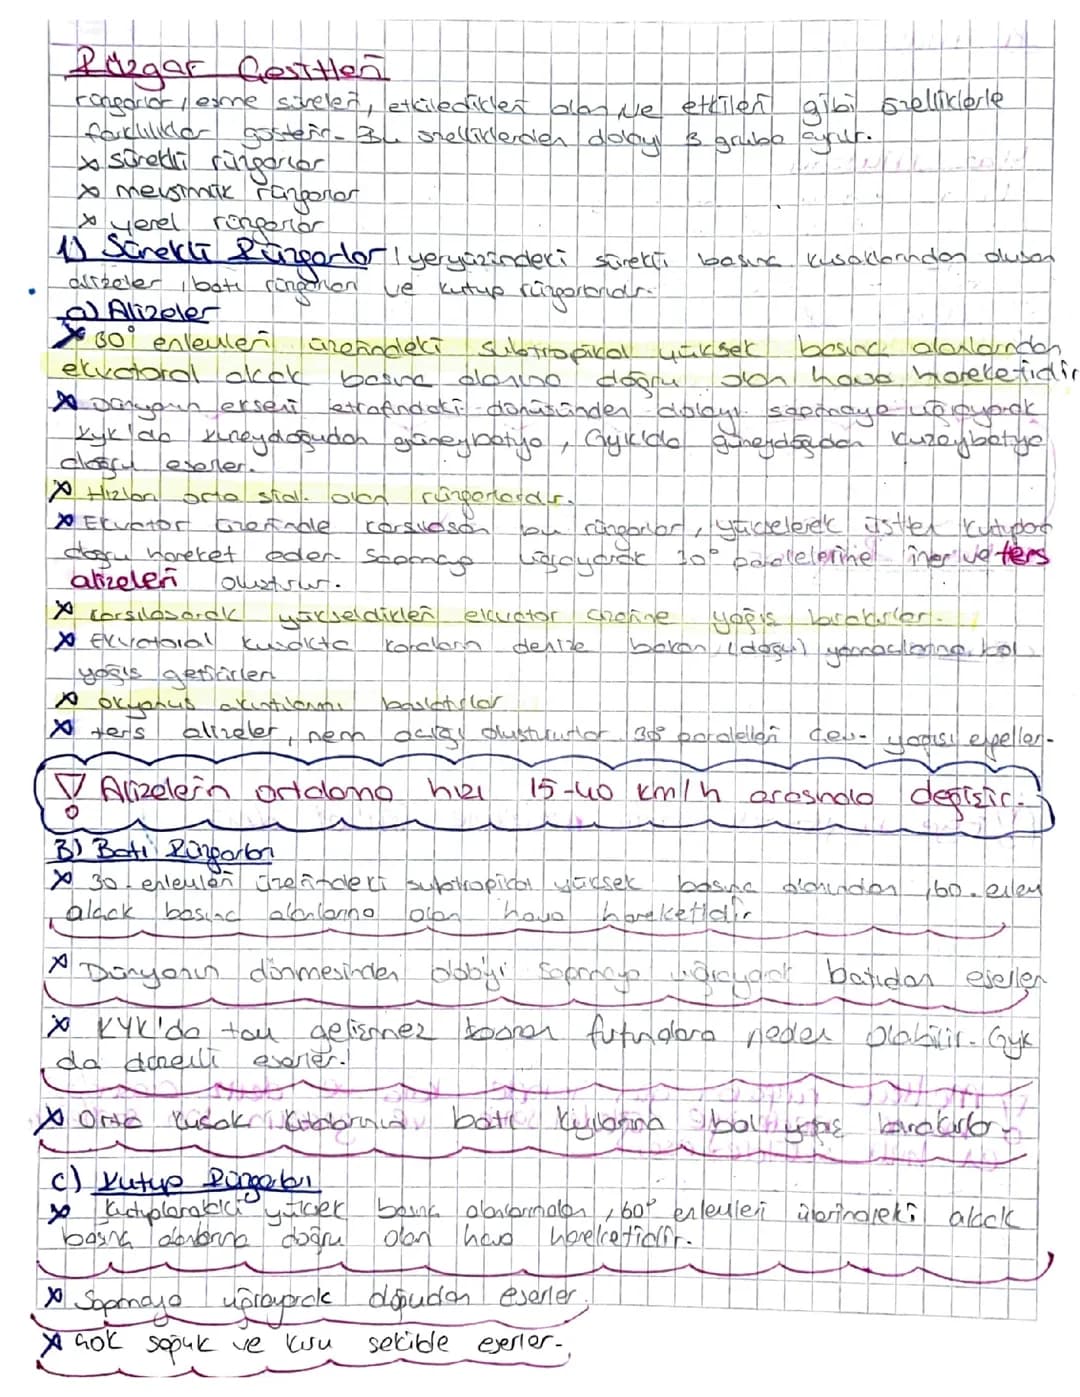 Rüzgar Çeşitleri
rüzgarlar, esme süreleri, etkiledikleri alan ve etkileri gibi özelliklerle
farklılıklar gösterir. Bu özelliklerden dolayı 3 gruba ayrılır.
x sürekli rüzgarlar
x mevsimlik rüzgarlar
x yerel rüzgarlar
1) Sürekli Rüzgarlar / yeryüzündeki sürekli basınç kuşaklarından oluşan
alizeler, batı rüzgarları ve kutup rüzgarlarıdır.
a) Alizeler
x 30° enlemleri üzerindeki subtropikal yüksek basınç alanlarından
ekvatoral alçak basınç alanına doğru olan hava hareketidir
x Dünyanın ekseni etrafındaki dönüşünden dolayı sapmaya uğrayarak
KYK'da kuzeydoğudan güneybatıya, GYK'da güneydoğudan kuzeybatıya
doğru eserler.
x Hızları orta olan rüzgarlardır.
x Ekvator üzerinde karşılaşan bu rüzgarlar, yükselerek üstten kutuplara
doğru hareket eder. Sapmaya uğrayarak 30° paralellerine iner ve ters
alizeleri oluşturur.
x karşılaşarak yükseldikleri ekvator üzerine yağış bırakırlar.
x Ekvatoral kuşakta karaların denize bakan (doğu) yamaçlarına bol
yağış getirirler
x okyanus akıntılarını başlatırlar
x ters alizeler, nem açığı oluştururlar 30° paralelleri çev. yağışı engeller.
! Alizelerin ortalama hızı 15-40 km/h arasında değişir.
B) Batı Rüzgarları
x 30. enlemleri üzerindeki subtropikal yüksek basınç alanından, 60. enlem
alçak basınç alanlarına olan hava hareketidir
x Dünyanın dönmesinden dolayı sapmaya uğrayarak batıdan eserler
x KYK'da tam gelişmez bazen fırtınalara neden olabilir. GYK
da düzenli eserler.
x Orta kuşak kıtalarının batı kıylarına bol yağış bırakırlar.
c) Kutup Rüzgarları
x Kutuplardaki yüksek basınç alanlarından, 60° enlemleri üzerindeki alçak
basınç alanlarına doğru olan hava hareketidir.
x Sapmaya uğrayarak doğudan eserler.
x Çok soğuk ve kuru şekilde eserler.